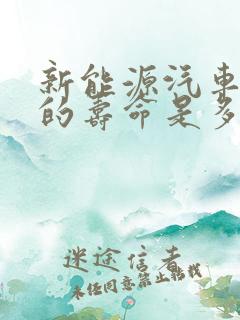 新能源汽车
的寿命是多
迷途信者
未经同意禁止转载